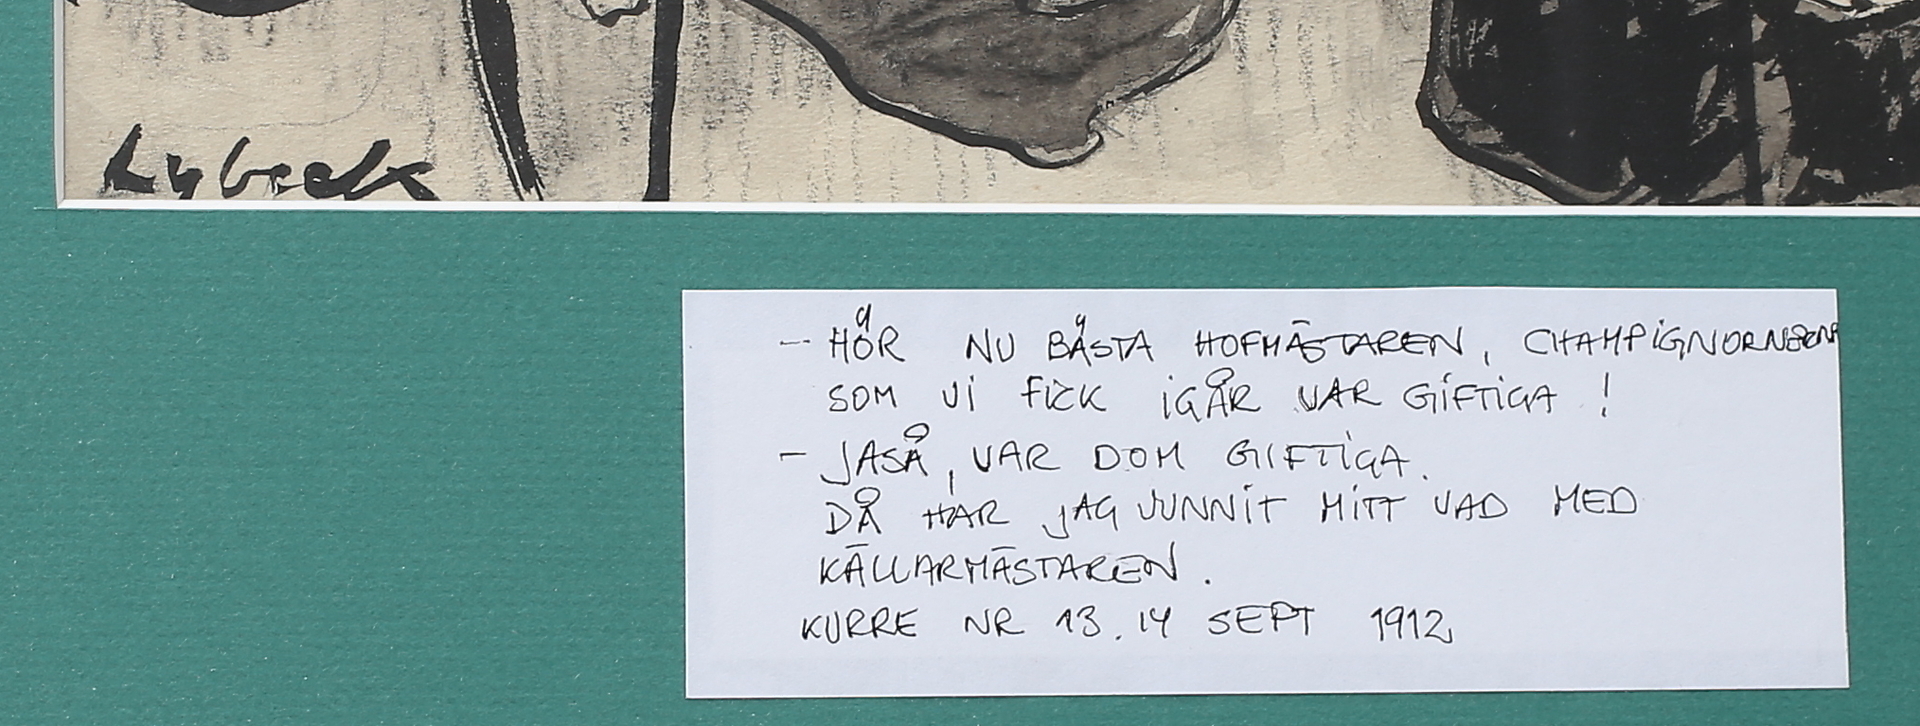 Lybeck
- HÖR NU BÄSTA HOFMÄSTAREN, CHAMPIGNORNERNA
SOM VI FICK IGÅR VAR GIFTIGA !
- JASÅ, VAR DOM GIFTIGA.
DÅ HAR JAG VUNNIT MITT VAD MED
KÄLLARMÄSTAREN.
KURRE NR 13. 14 SEPT 1912